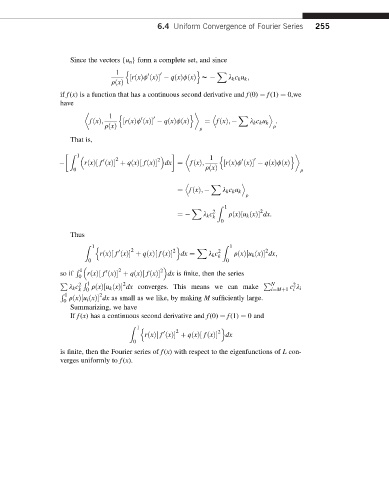 6.4 Uniform Convergence of Fourier Series 255
Since the vectors {uₙ} form a complete set, and since
1/ρ(x) {[r(x)φ′(x)]′ − q(x)φ(x)} ~ − ∑ λₖcₖuₖ,
if f(x) is a function that has a continuous second derivative and f(0) = f(1) = 0,we
have
⟨f(x), 1/ρ(x) {[r(x)φ′(x)]′ − q(x)φ(x)}⟩ρ = ⟨f(x), − ∑ λₖcₖuₖ⟩ρ.
That is,
−[∫₀¹ (r(x)[f′(x)]² + q(x)[f(x)]²)dx] = ⟨f(x), 1/ρ(x) {[r(x)φ′(x)]′ − q(x)φ(x)}⟩ρ
= ⟨f(x), − ∑ λₖcₖuₖ⟩ρ
= − ∑ λₖcₖ² ∫₀¹ ρ(x)[uₖ(x)]²dx.
Thus
∫₀¹ {r(x)[f′(x)]² + q(x)[f(x)]²}dx = ∑ λₖcₖ² ∫₀¹ ρ(x)[uₖ(x)]²dx,
so if ∫₀¹ (r(x)[f′(x)]² + q(x)[f(x)]²)dx is finite, then the series
∑ λₖcₖ² ∫₀¹ ρ(x)[uₖ(x)]²dx converges. This means we can make ∑ᵢ₌M₊₁ᴺ cᵢ²λᵢ
∫₀¹ ρ(x)[uᵢ(x)]²dx as small as we like, by making M sufficiently large.
Summarizing, we have
If f(x) has a continuous second derivative and f(0) = f(1) = 0 and
∫₀¹ {r(x)[f′(x)]² + q(x)[f(x)]²}dx
is finite, then the Fourier series of f(x) with respect to the eigenfunctions of L con-
verges uniformly to f(x).